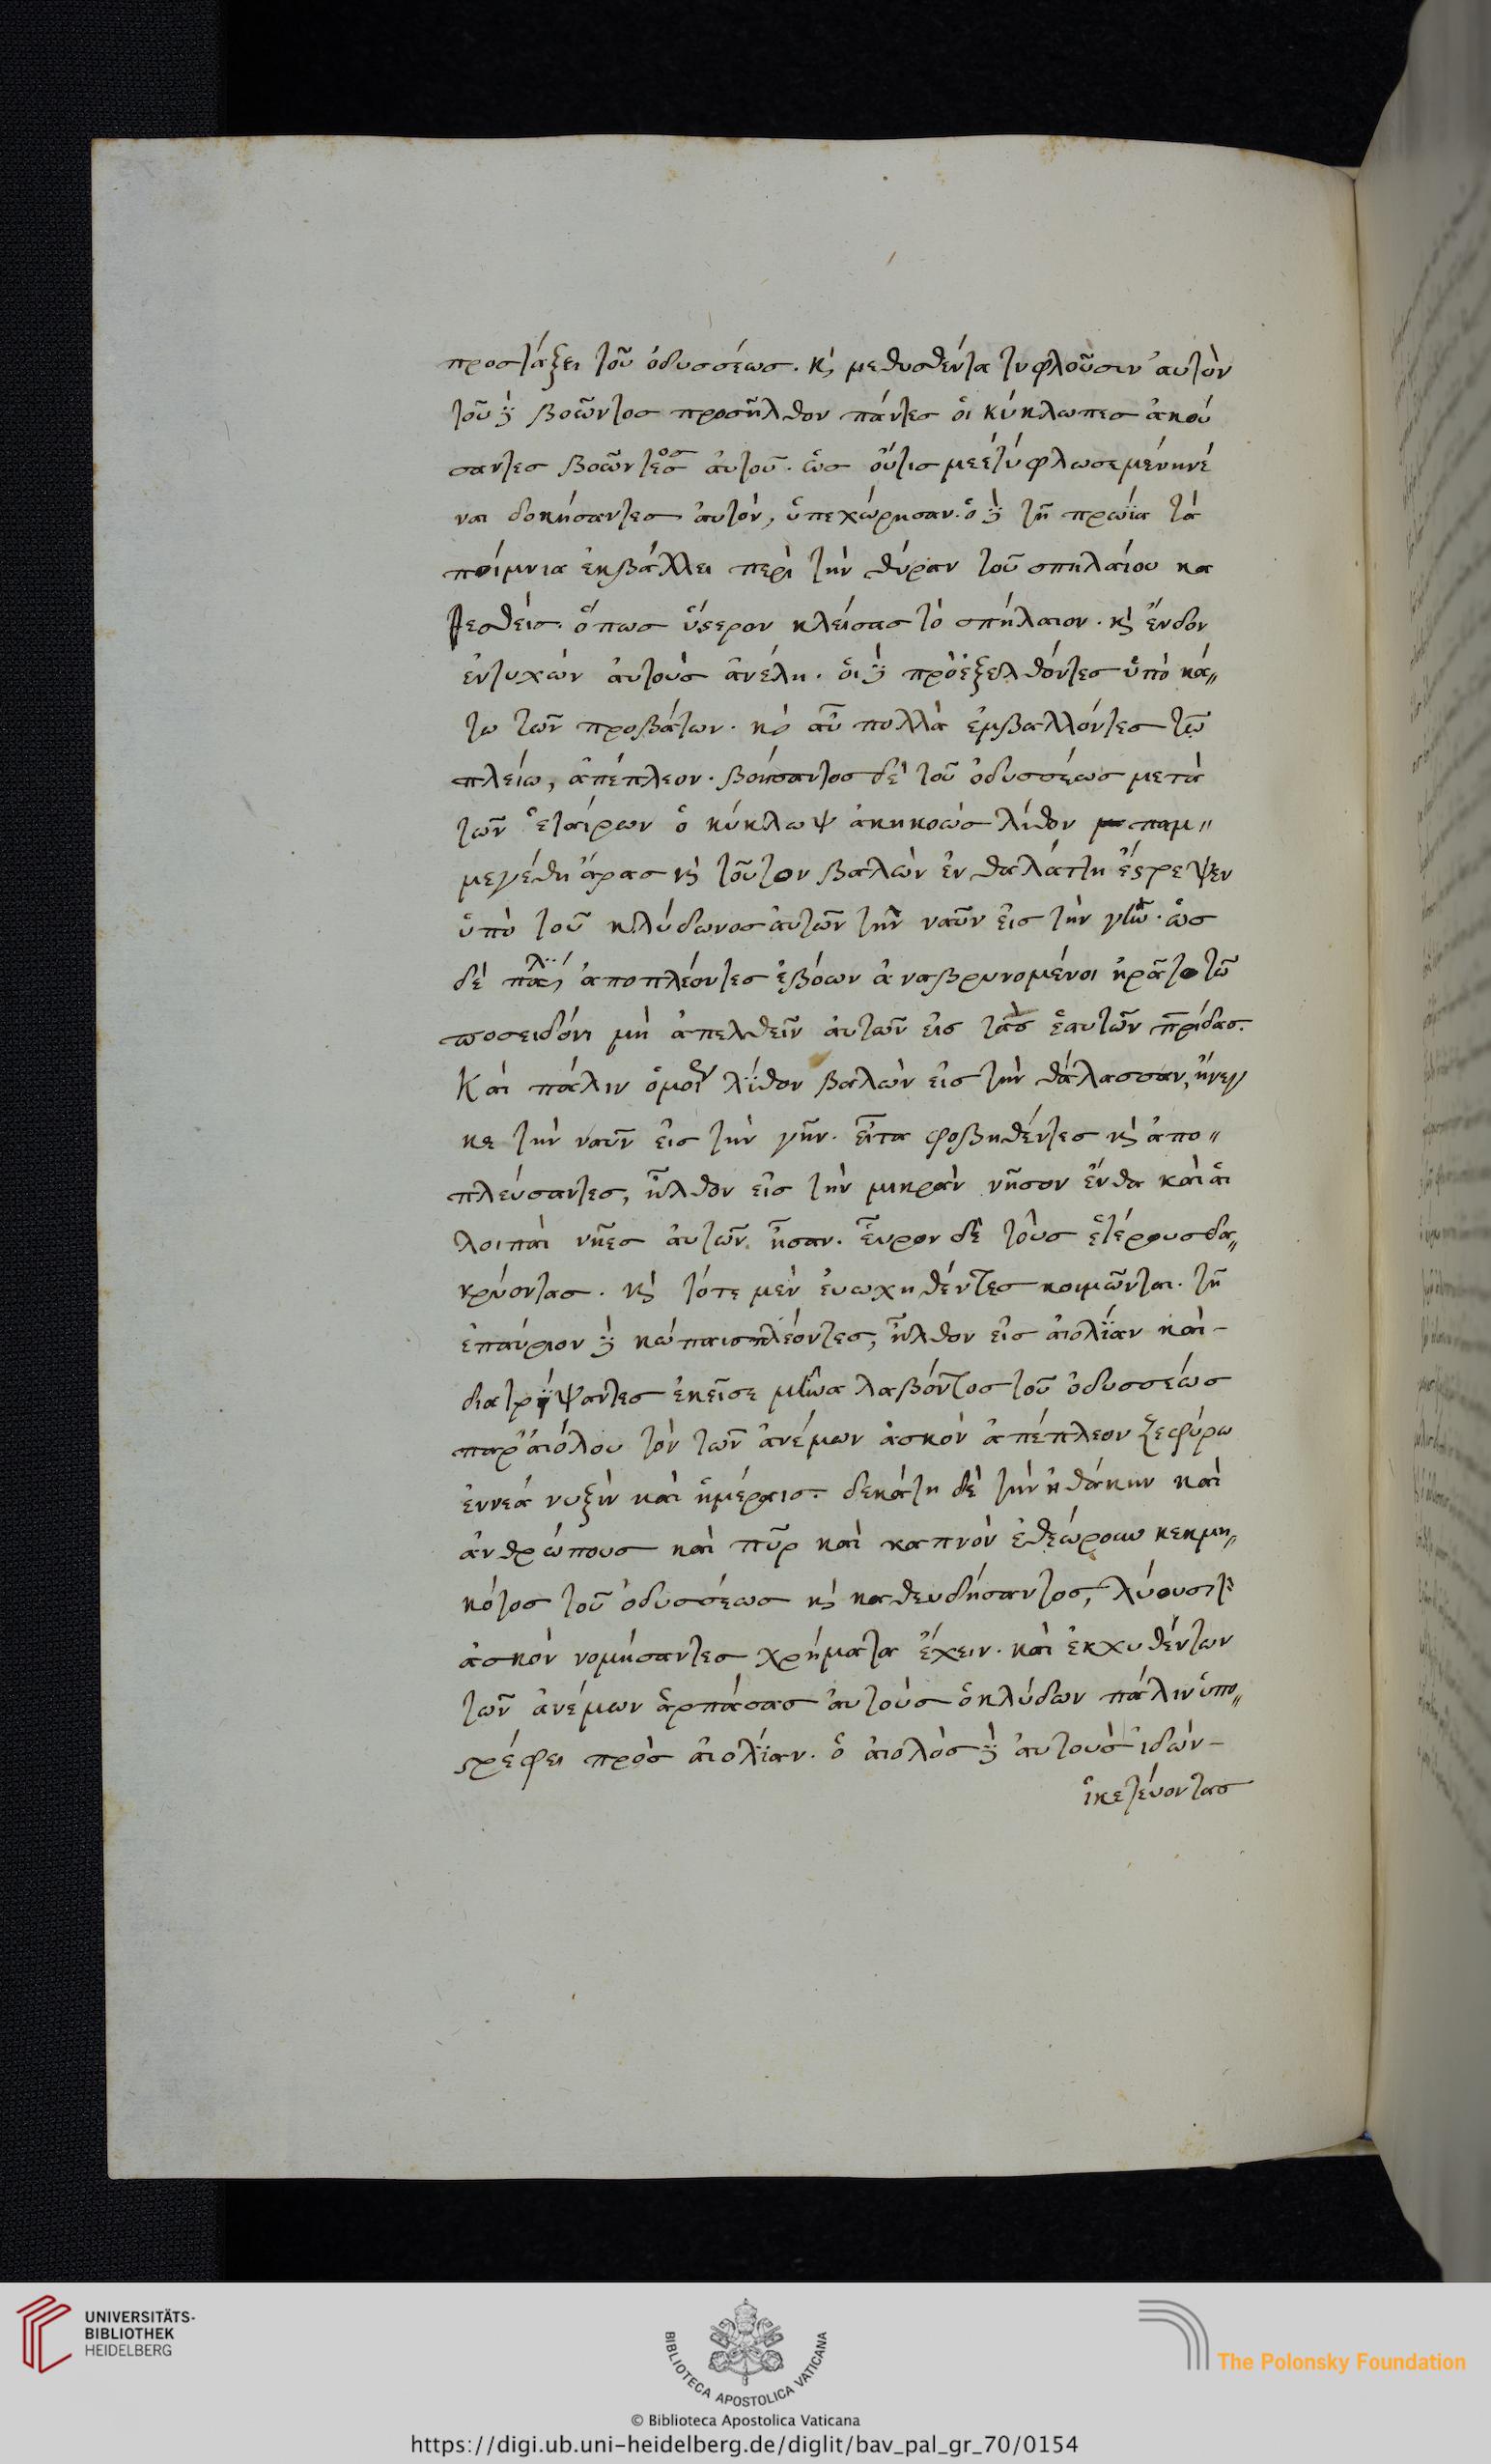 προστάξει τοῦ ὀδυσσέως. κ, μεθυσθέντα τυφλοῦσιν αὐτὸν
τοῦ δὲ βοῶντος προσῆλθον πάντες οἱ κύκλωπες ἀκού
σαντες βοῶντος αὐτοῦ. ὡς οὔτις με ἐτύφλωσε μένηνέ
ναι δοκήσαντες αὐτὸν, ὑπεχώρησαν. ὁ δὲ τῆ πρωΐα τὰ
ποίμνια ἐκβάλλει περὶ τὴν θύραν τοῦ σπηλαίου κα
θεσθείς. ὅπως ὕστερον κλείσας τὸ σπήλαιον. κ, ἔνδον
ἐντυχὼν αὐτοὺς ἀνέλη. οἱ δὲ προεξελθόντες ὑπὸ κά„
τω τῶν προβάτων. κ, αὖ πολλὰ ἐμβαλλόντες τῶ
πλείω, ἀπέπλεον. βοήσαντος δὲ τοῦ ὀδυσσέως μετὰ
τῶν ἑταίρων ὁ κύκλωψ ἀκηκοὼς λίθον παμ„
μεγέθη ἄρας κ, τοῦτον βαλὼν ἐν θαλάττη ἔστρεψεν
ὑπὸ τοῦ κλύδωνος αὐτῶν τὴν ναῦν εἰς τὴν γῆν. ὡς
δὲ πάλιν ἀποπλέοντες ἐβόων ἀναβρυνομένοι ἠρᾶτο τῶ
ποσειδόνι μὴ ἀπελθεῖν αὐτῶν εἰς τὰς ἑαυτῶν πρίδας.
Καὶ πάλιν ὅμοιον λίθον βαλὼν εἰς τὴν θάλασσαν, ἤνεγ
κε τὴν ναῦν εἰς τὴν γῆν. εἶτα φοβηθέντες κ, ἀπο„
πλεύσαντες, ἦλθον εἰς τὴν μικρὰν νῆσον ἔνθα καὶ αἱ
λοιπαὶ νῆες αὐτῶν ἦσαν. εὗρον δὲ τοὺς ἑτέρους δα„
κρύοντας. κ, τότε μὲν εὐωχηθέντες κοιμῶνται. τῆ
ἐπαύριον δὲ κώπαις πλέοντες, ἦλθον εἰς αἰολίαν καὶ-
διατρίψαντες ἐκεῖσε μῆνα λαβόντος τοῦ ὀδυσσέως
παρ' αἰόλου τὸν τῶν ἀνέμων ἀσκὸν ἀπέπλεον ζεφύρω
ἐννεὰ νυξὶν καὶ ἡμέραις. δεκάτη δὲ τὴν ἠθάκην καὶ
ἀνθρώπους καὶ πῦρ καὶ καπνὸν ἐθεώρουν κεκμη„
κότος τοῦ ὀδυσσέως κ, καθευδήσαντος, λύουσι τὸν
ἀσκὸν νομήσαντες χρήματα ἔχειν. καὶ ἐκχυθέντων
τῶν ἀνέμων ἁρπάσας αὐτοὺς ὁ κλύδων πάλιν ὑπο„
στρέφει πρὸς αἰολίαν. ὁ αἰολὸς δὲ αὐτοὺς ἰδὼν-
ἱκετεύοντας
UNIVERSITÄTS-
BIBLIOTHEK
HEIDELBERG
BIBLIOTECA APOSTOLICA VATICANA
The Polonsky Foundation
© Biblioteca Apostolica Vaticana
https://digi.ub.uni-heidelberg.de/diglit/bav_pal_gr_70/0154